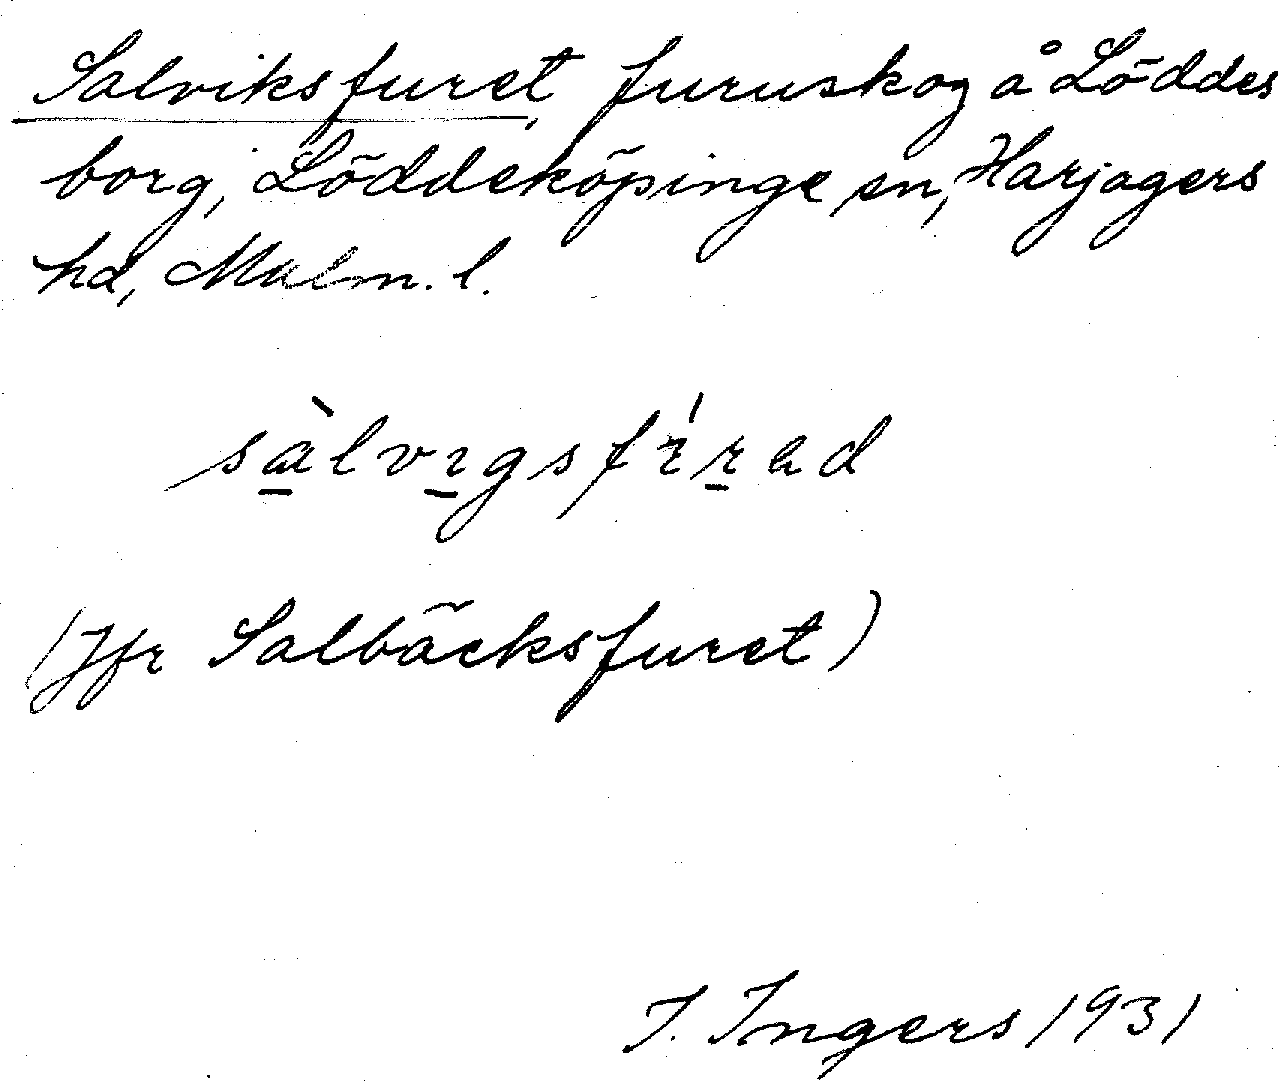 Salviksfuret, furuskog å Löddes
borg, Löddeköpinge sn, Harjagers
hd, Malm. l.
(Jfr Salbäcksfuret)
I. Ingers 1931